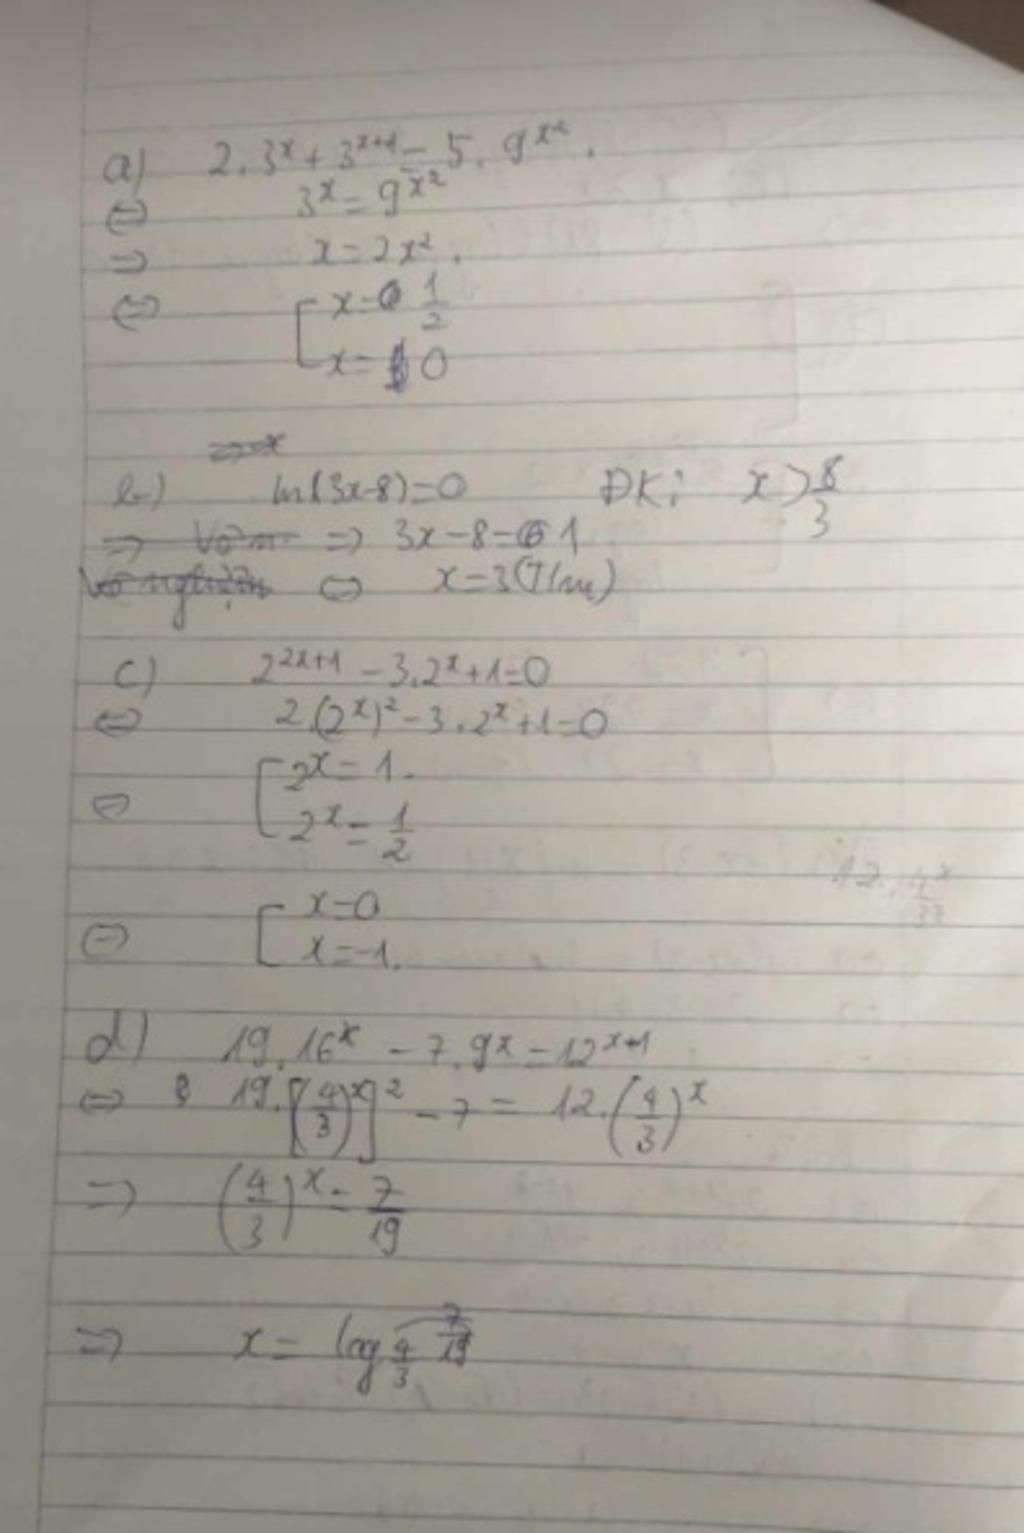 a) 2.3^x + 3^{x+1} = 5.9^{x^2}.
⇔ 3^x = 9^{x^2}
⇒ x = 2x^2.
⇔ [ x = 1/2
x = 0
b) ln(3x-8)=0 ĐK: x > 8/3
⇒ 3x-8=1
Vô nghiệm ⇔ x=3(T/m)
c) 2^{2x+1} - 3.2^x + 1 = 0
⇔ 2.(2^x)^2 - 3.2^x + 1 = 0
⇔ [ 2^x = 1.
2^x = 1/2
⇔ [ x = 0
x = -1.
d) 19.16^x - 7.9^x = 12^{x+1}
⇔ 19.[(4/3)^x]^2 - 7 = 12.(4/3)^x
⇒ (4/3)^x = 7/19
⇒ x = log_{4/3} 7/19